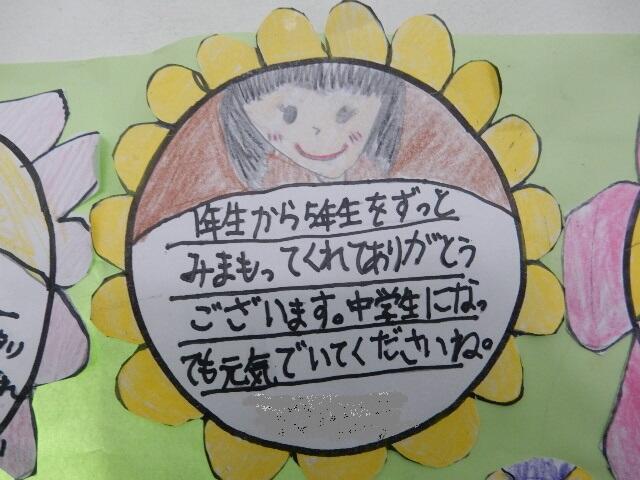 1年生から5年生をずっと
みまもってくれてありがとう
ございます。中学生になっ
ても元気でいてくださいね。